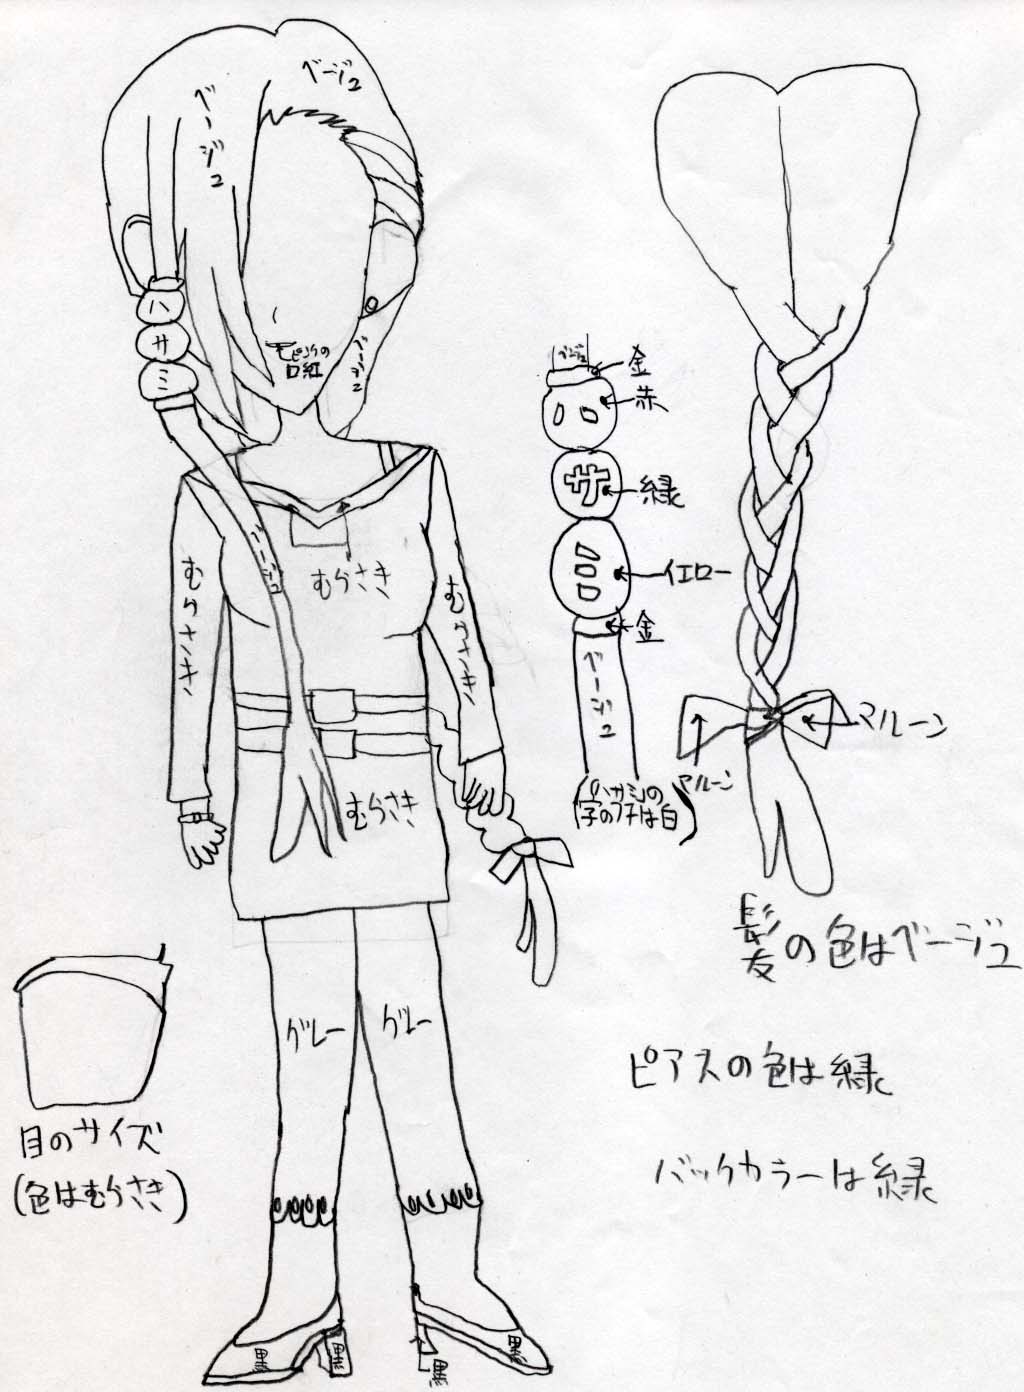 ベージュ
ベージュ
ハ
サ
ミ
ピンクの
口紅
ベージュ
むらさき
ベージュ
むらさき
むらさき
むらさき
グレー
グレー
黒
黒
黒
黒
目のサイズ
(色はむらさき)
ベージュ
金
赤
ハ
サ
緑
ミ
イエロー
金
ベージュ
(ハサミの
字のフチは白)
マルーン
マルーン
髪の色はベージュ
ピアスの色は緑
バックカラーは緑